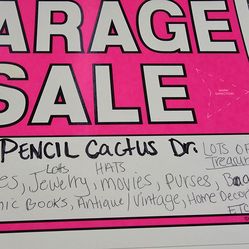 ARAGE
SALE
PENCIL CACTUS Dr.
LOTS OF
Treasures
Lots HATS
es, Jewelry, movies, Purses,
mic BOOKS, Antique/Vintage, Home Decor
ETC